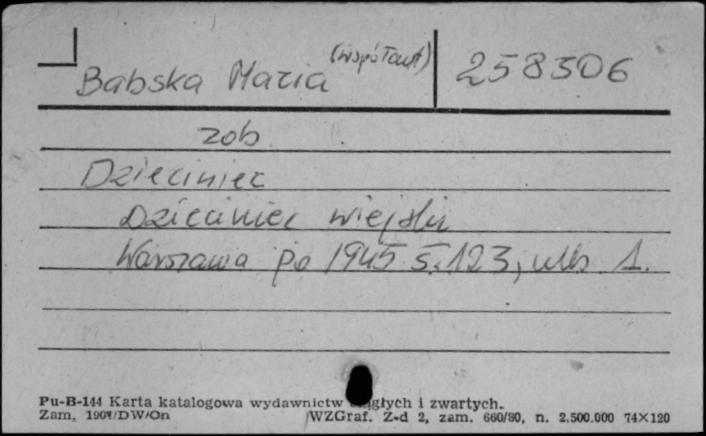 Babska Maria (współaut) 258506
zob
Dzieciniec
Dzieciniec wiejski
Warszawa po 1945 S. 123, nlb 1.
Pu-B-144 Karta katalogowa wydawnictw ciągłych i zwartych.
Zam. /DW/On WZGraf. Z-d 2, zam. 660/80, n. 2.500.000 74×120